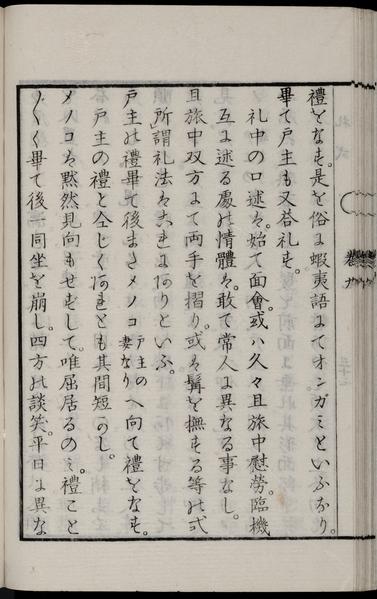 禮をなす。是を俗に蝦夷語にてオンガミといふなり。
畢て戸主も又荅礼す。
礼中の口述は、始て面會、或ハ久々且旅中慰勞、臨機
互に述る處の情體は、敢て常人に異なる事なし。
且旅中双方にて両手を摺り、或は髯を撫する等の式
所謂礼法はこれにありといふ。
戸主の禮畢て後またメノコ戸主の妻なりへ向て禮をなす。
戸主の禮と仝じくあれとも其間短かし。
メノコは黙然見向もせずして、唯屈居るのミ。禮こと
〴〵く畢て後一同坐を崩し、四方の談笑、平日に異な
巻九